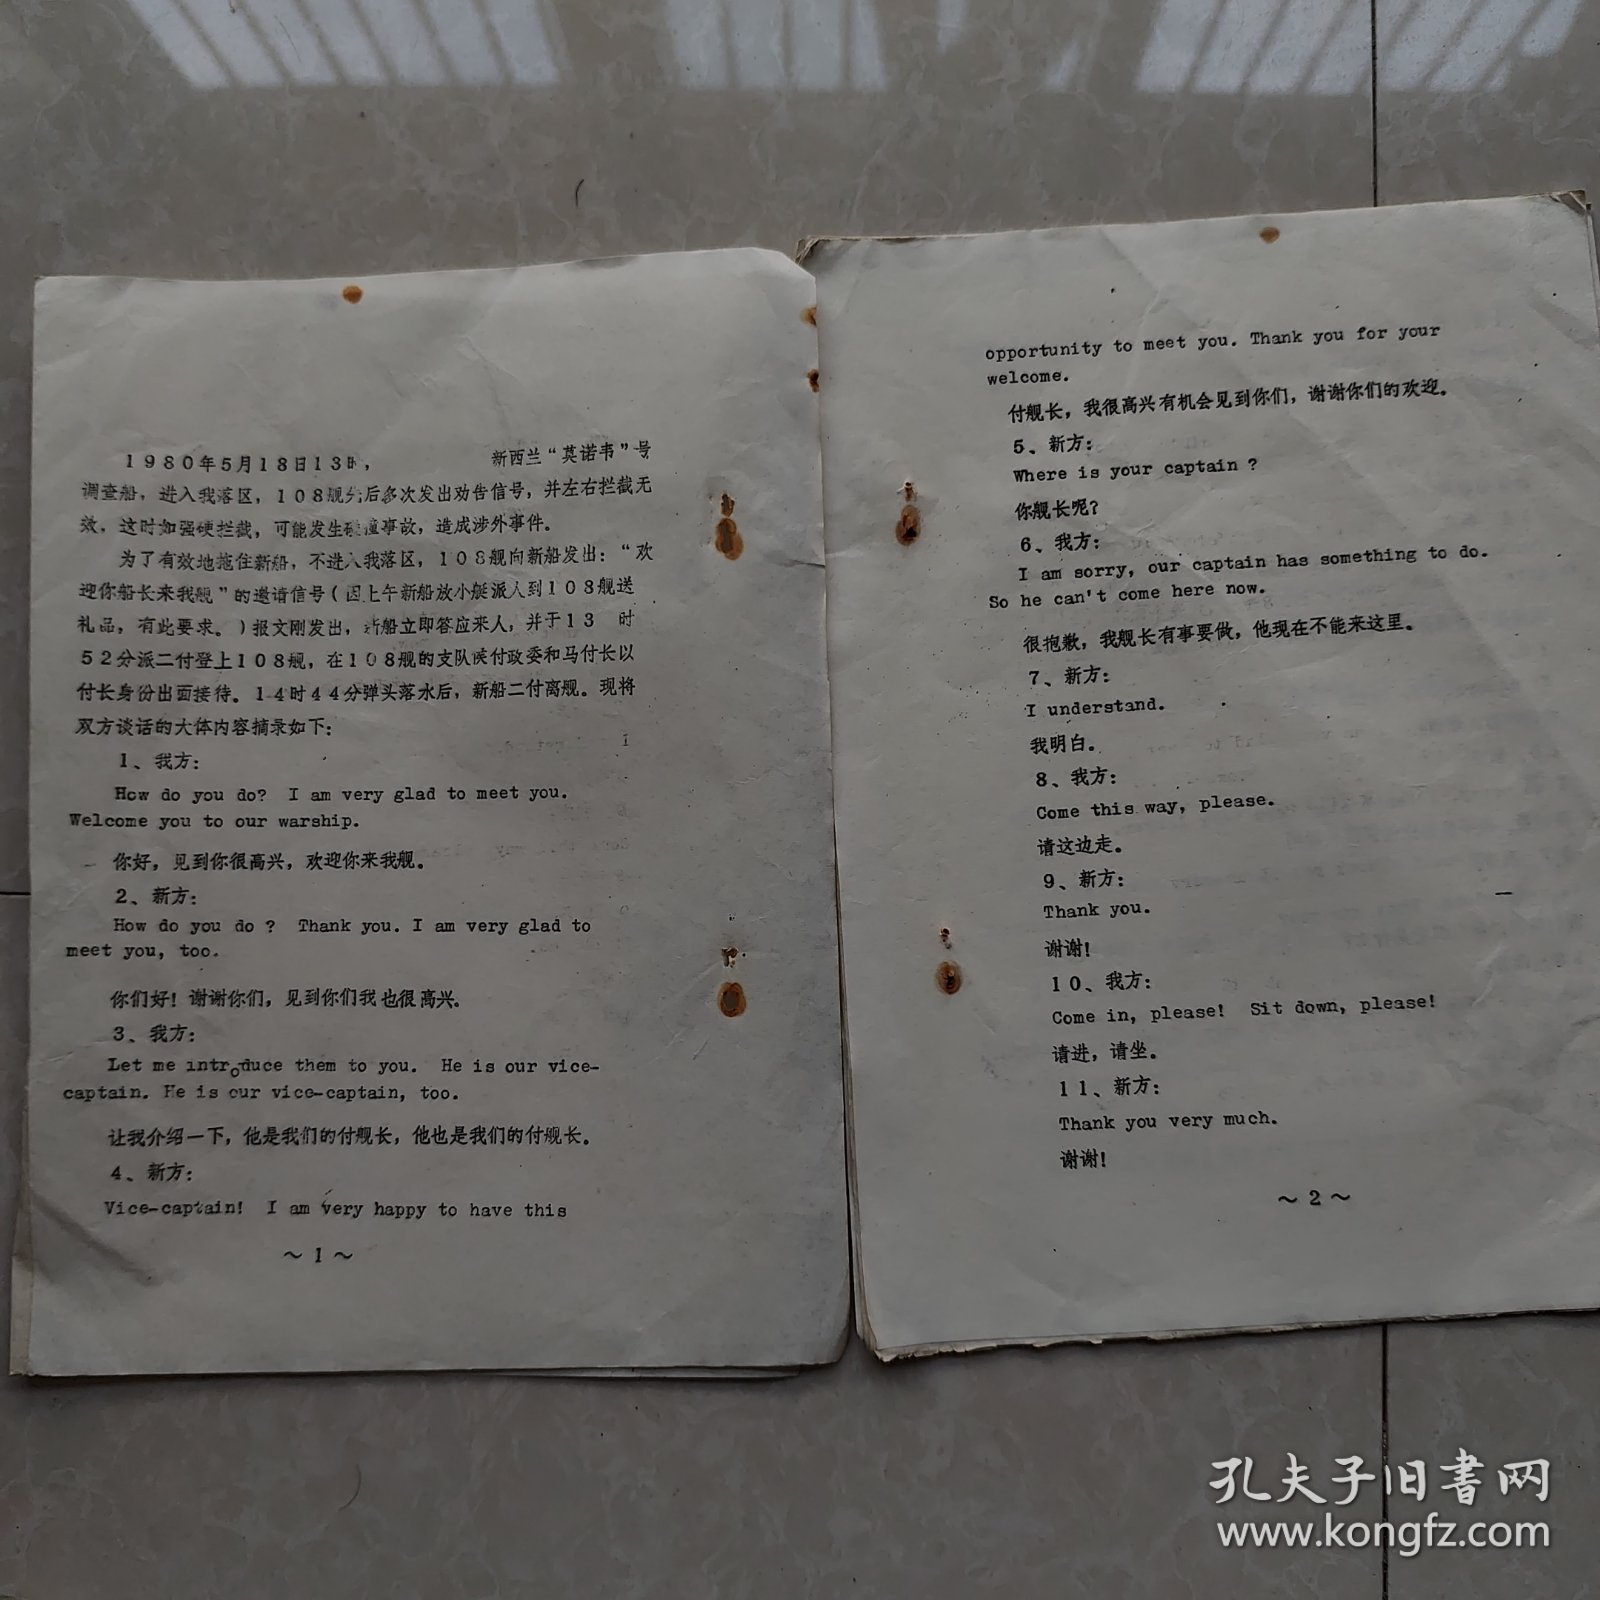 1980年5月18日13时， 新西兰“莫诺韦”号
调查船，进入我落区，108舰先后多次发出劝告信号，并左右拦截无
效，这时如强硬拦截，可能发生碰撞事故，造成涉外事件。
为了有效地拖住新船，不进入我落区，108舰向新船发出：“欢
迎你船长来我舰”的邀请信号（因上午新船放小艇派人到108舰送
礼品，有此要求。）报文刚发出，新船立即答应来人，并于13 时
52分派二付登上108舰，在108舰的支队侯付政委和马付长以
付长身份出面接待。14时44分弹头落水后，新船二付离舰。现将
双方谈话的大体内容摘录如下：
1、我方：
How do you do? I am very glad to meet you.
Welcome you to our warship.
你好，见到你很高兴，欢迎你来我舰。
2、新方：
How do you do ? Thank you. I am very glad to
meet you, too.
你们好！谢谢你们，见到你们我也很高兴。
3、我方：
Let me introduce them to you. He is our vice-
captain. He is our vice-captain, too.
让我介绍一下，他是我们的付舰长，他也是我们的付舰长。
4、新方：
Vice-captain! I am very happy to have this
～1～
opportunity to meet you. Thank you for your
welcome.
付舰长，我很高兴有机会见到你们，谢谢你们的欢迎。
5、新方：
Where is your captain ?
你舰长呢？
6、我方：
I am sorry, our captain has something to do.
So he can't come here now.
很抱歉，我舰长有事要做，他现在不能来这里。
7、新方：
I understand.
我明白。
8、我方：
Come this way, please.
请这边走。
9、新方：
Thank you.
谢谢！
10、我方：
Come in, please! Sit down, please!
请进，请坐。
11、新方：
Thank you very much.
谢谢！
～2～
孔夫子旧书网
www.kongfz.com